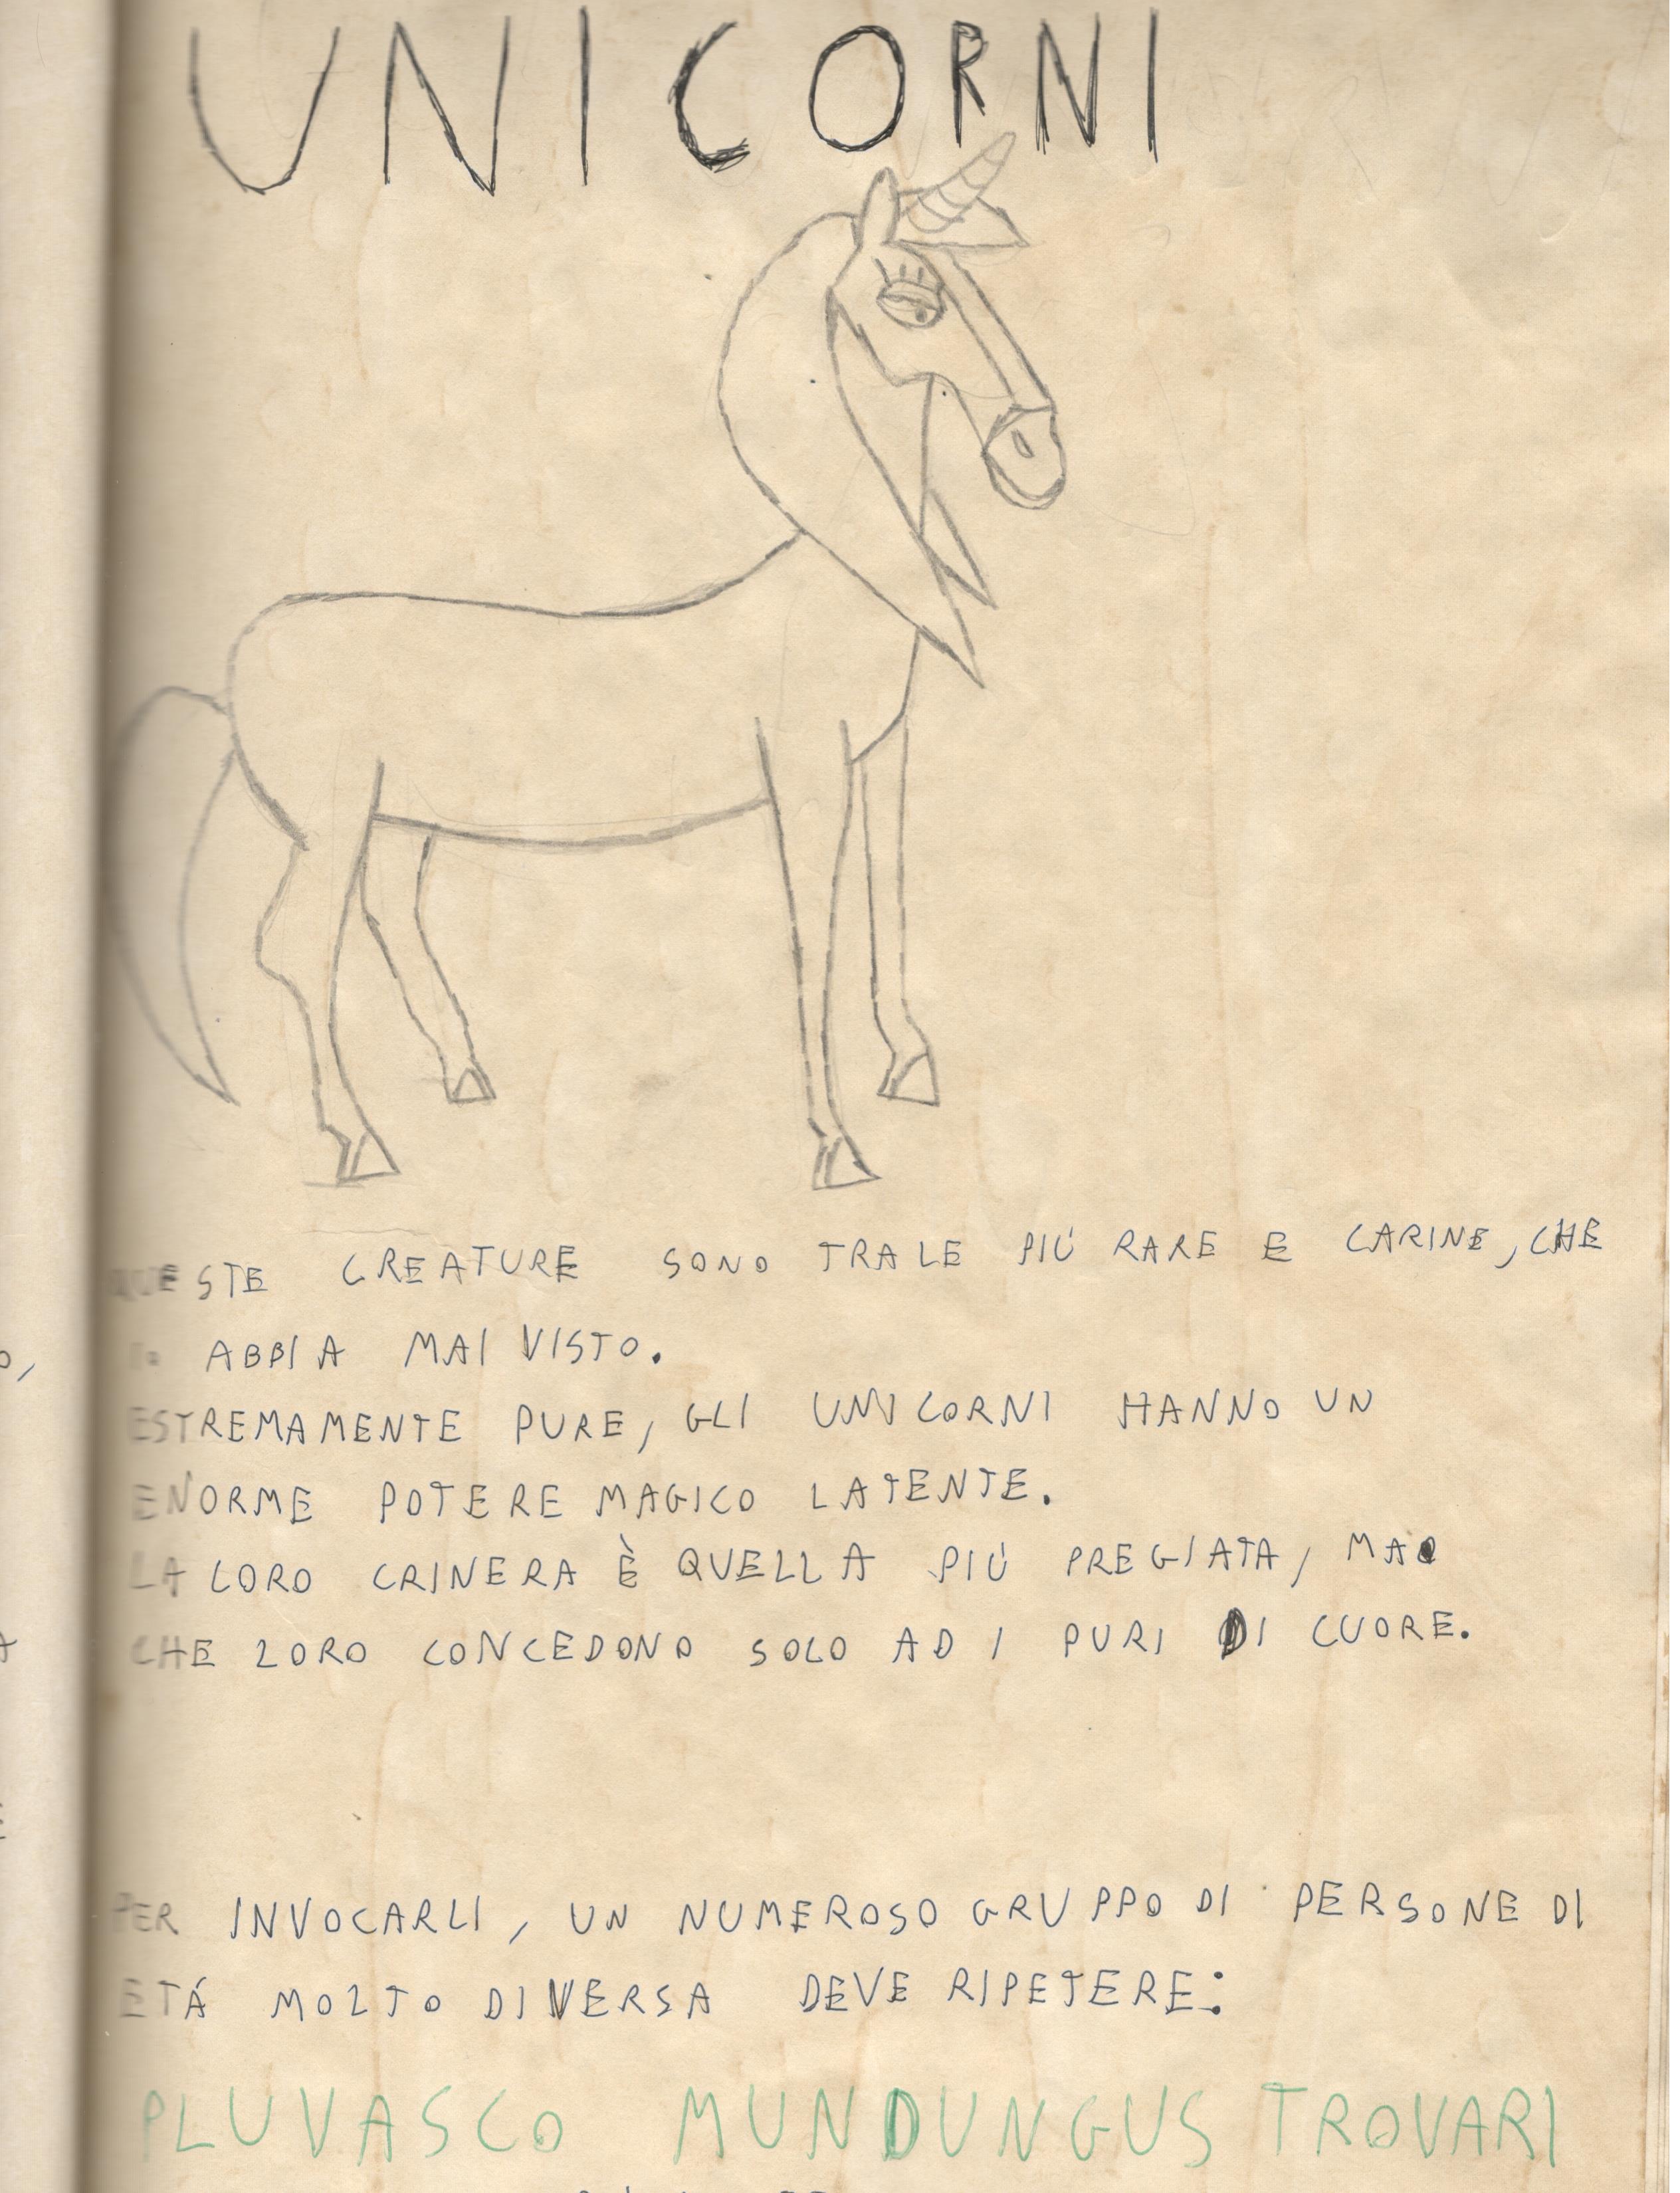 UNICORNI
QUESTE CREATURE SONO TRA LE PIÚ RARE E CARINE, CHE
IO ABBIA MAI VISTO.
ESTREMAMENTE PURE, GLI UNICORNI HANNO UN
ENORME POTERE MAGICO LATENTE.
LA LORO CRINERA È QUELLA PIÚ PREGIATA, MA
CHE LORO CONCEDONO SOLO AD I PURI DI CUORE.
PER INVOCARLI, UN NUMEROSO GRUPPO DI PERSONE DI
ETÁ MOLTO DIVERSA DEVE RIPETERE:
PLUVASCO MUNDUNGUS TROVARI